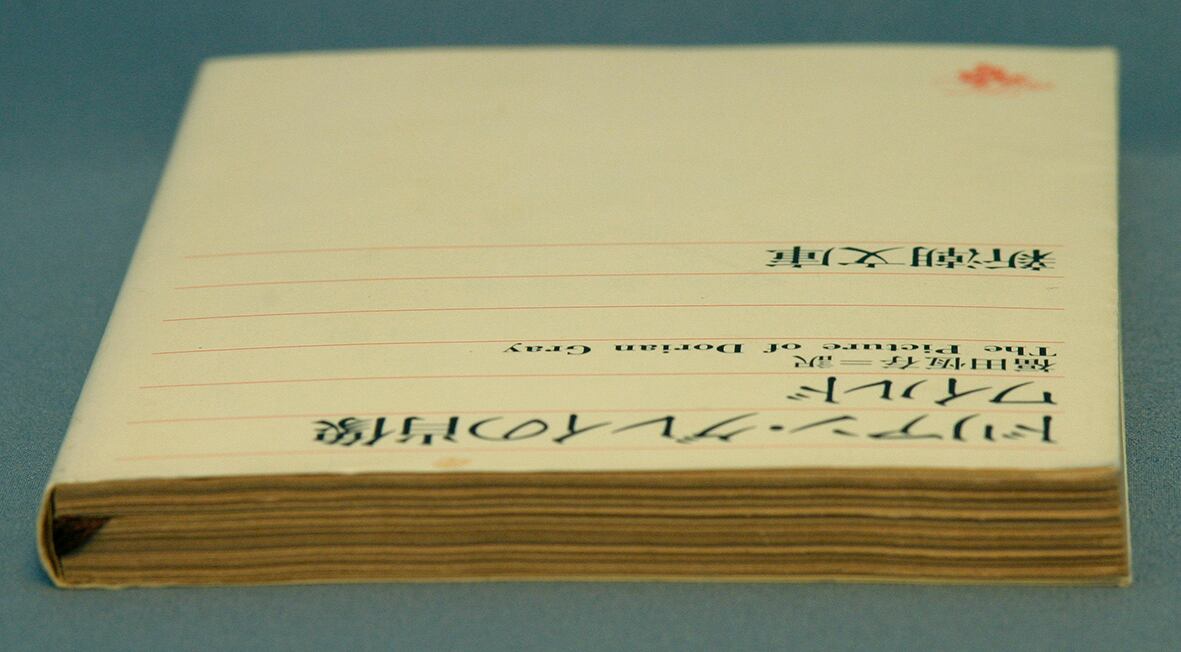 ドリアン・グレイの肖像
ワイルド
福田恆存＝訳
The Picture of Dorian Gray
新潮文庫